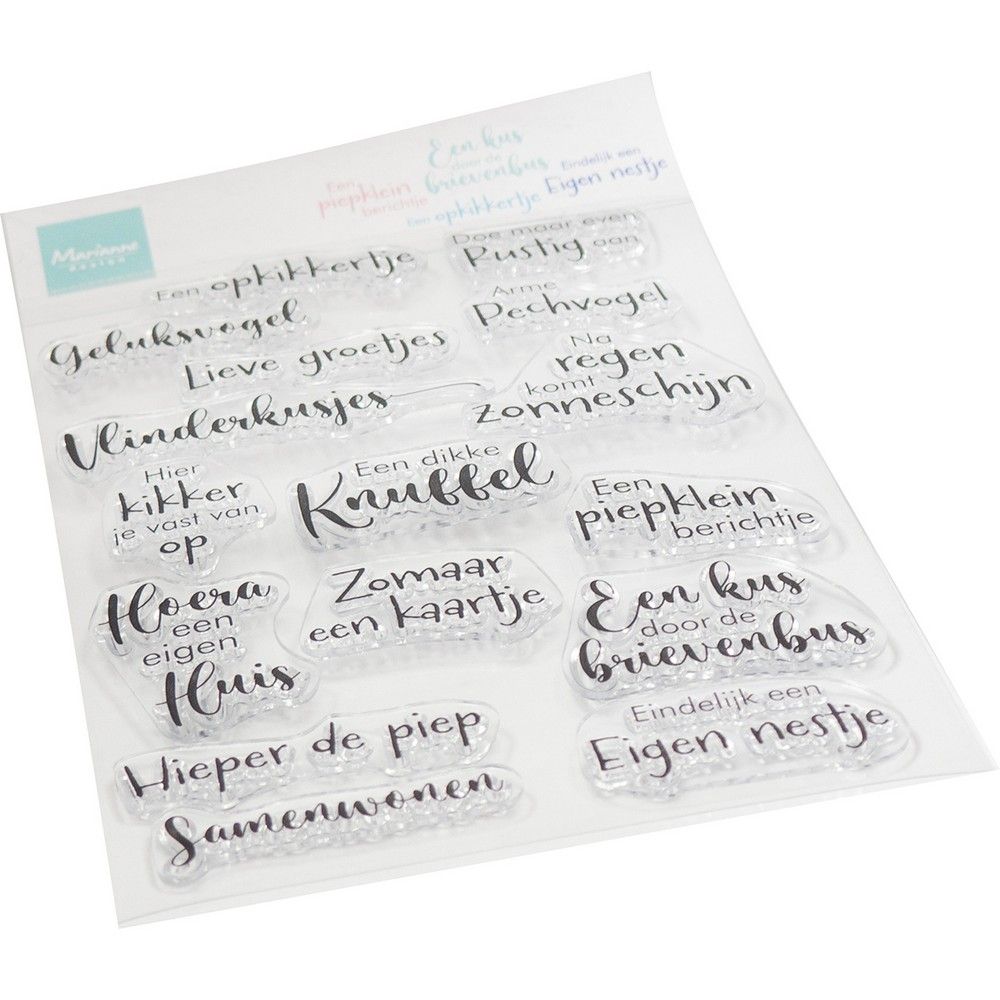 Een kus
door de
brievenbus
Een
piepklein
berichtje
Eindelijk een
Eigen nestje
Een opkikkertje
Marianne
DESIGN
Een opkikkertje
Doe maar even
Rustig aan
Geluksvogel
Arme
Pechvogel
Lieve groetjes
Na
regen
komt
zonneschijn
Vlinderkusjes
Hier
kikker
je vast van
op
Een dikke
Knuffel
Een
piepklein
berichtje
Hoera
een
eigen
Huis
Zomaar
een kaartje
Een kus
door de
brievenbus
Hieper de piep
Eindelijk een
Eigen nestje
Samenwonen